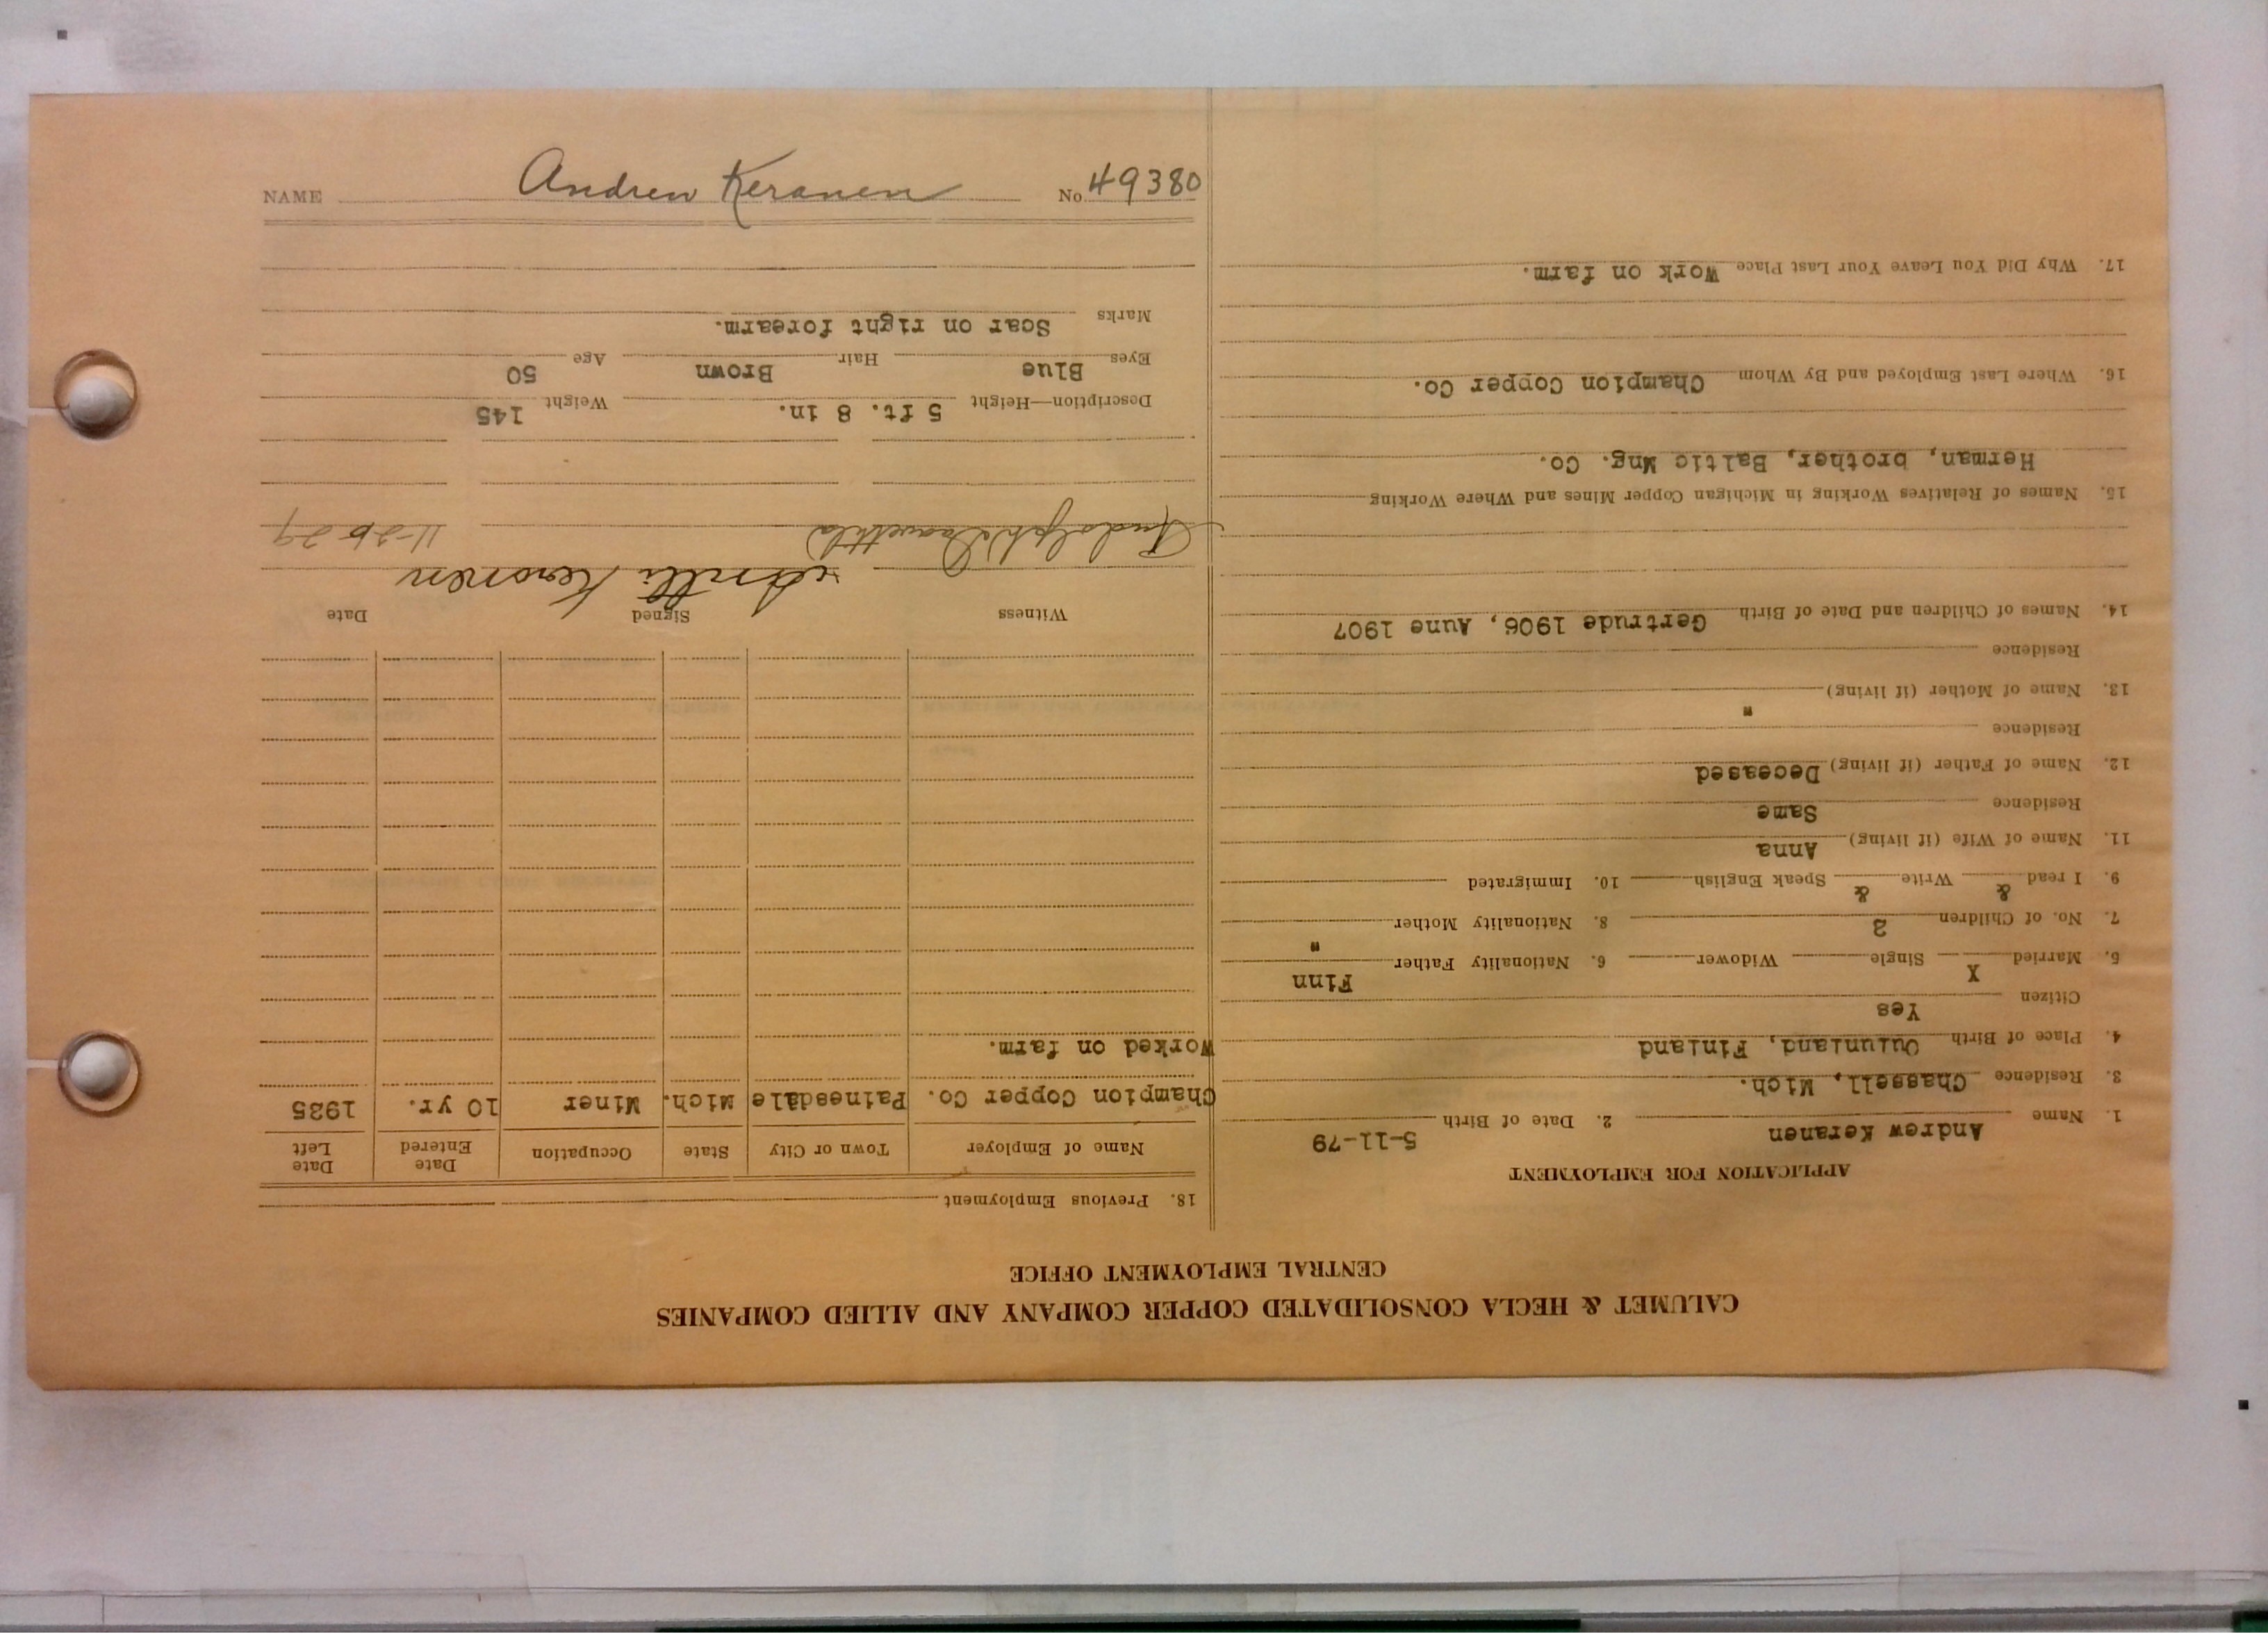 NAME Andrew Keranen No 49380
CALUMET & HECLA CONSOLIDATED COPPER COMPANY AND ALLIED COMPANIES
CENTRAL EMPLOYMENT OFFICE
APPLICATION FOR EMPLOYMENT
1. Name Andrew Keranen 2. Date of Birth 5-11-79
3. Residence Chassell, Mich.
4. Place of Birth Oulunland, Finland
Citizen Yes
5. Married X Single Widower 6. Nationality Father Finn
7. No. of Children 2 8. Nationality Mother "
9. I read & Write & Speak English 10. Immigrated
11. Name of Wife (if living) Anna
Residence Same
12. Name of Father (if living) Deceased
Residence
13. Name of Mother (if living) "
Residence
14. Names of Children and Date of Birth Gertrude 1906, Aune 1907
15. Names of Relatives Working in Michigan Copper Mines and Where Working
Herman, brother, Baltic Mng. Co.
16. Where Last Employed and By Whom Champion Copper Co.
17. Why Did You Leave Your Last Place Work on farm.
18. Previous Employment
Name of Employer Town or City State Occupation Date Entered Date Left
Champion Copper Co. Painesdale Mich. Miner 10 yr. 1925
Worked on farm.
Witness Signed Date
Antti Keronen
Rudolph 11-26-29
Description—Height 5 ft. 8 in. Weight 145
Eyes Blue Hair Brown Age 50
Marks Scar on right forearm.